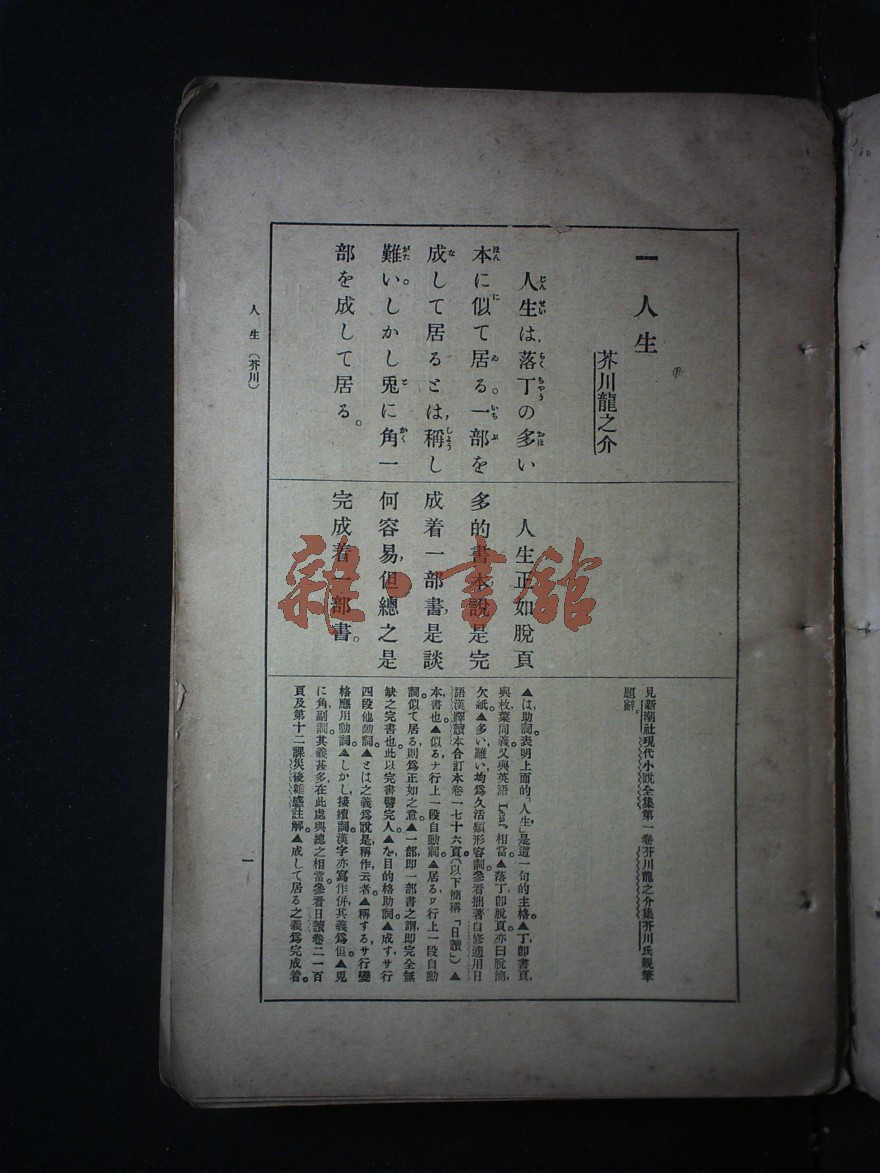 一 人生
芥川龍之介
人生は落丁の多い
本に似て居る。一部を
成して居るとは,稱し
難い。しかし兎に角一
部を成して居る。
人生正如脫頁
多的書本,說是完
成着一部書,是談
何容易,但總之是
完成着一部書。
見新潮社現代小說全集第一卷芥川龍之介集芥川氏親筆
題辭。
▲は,助詞,表明上面的「人生」是這一句的主格。▲丁,卽書頁,
與枚葉同義,又與英語 Leaf 相當。▲落丁卽脫頁,亦曰脫簡,
欠紙。▲多い,難い,均爲久活類形容詞,參看拙著自修適用日
語漢譯讀本合訂本卷一七十六頁(以下簡稱「日讀」)▲
本,書也。▲似る,ナ行上一段自動詞。▲居る,ワ行上一段自動
詞,似て居る,則爲正如之意。▲一部卽一部書之謂,卽完全無
缺之完書也。此以完書譬完人。▲を,目的格助詞。▲成す,サ行
四段他動詞。▲とは之義爲說是,稱作云者。▲稱する,サ行變
格應用動詞。▲しかし,接續詞,漢字亦寫作併,其義爲但。▲兎
に角,副詞,其義甚多,在此處與總之相當,參看日讀卷二一百
頁及第十二課災後雜感註解。▲成して居る之義爲完成着。
人生(芥川)
一
雜·書館